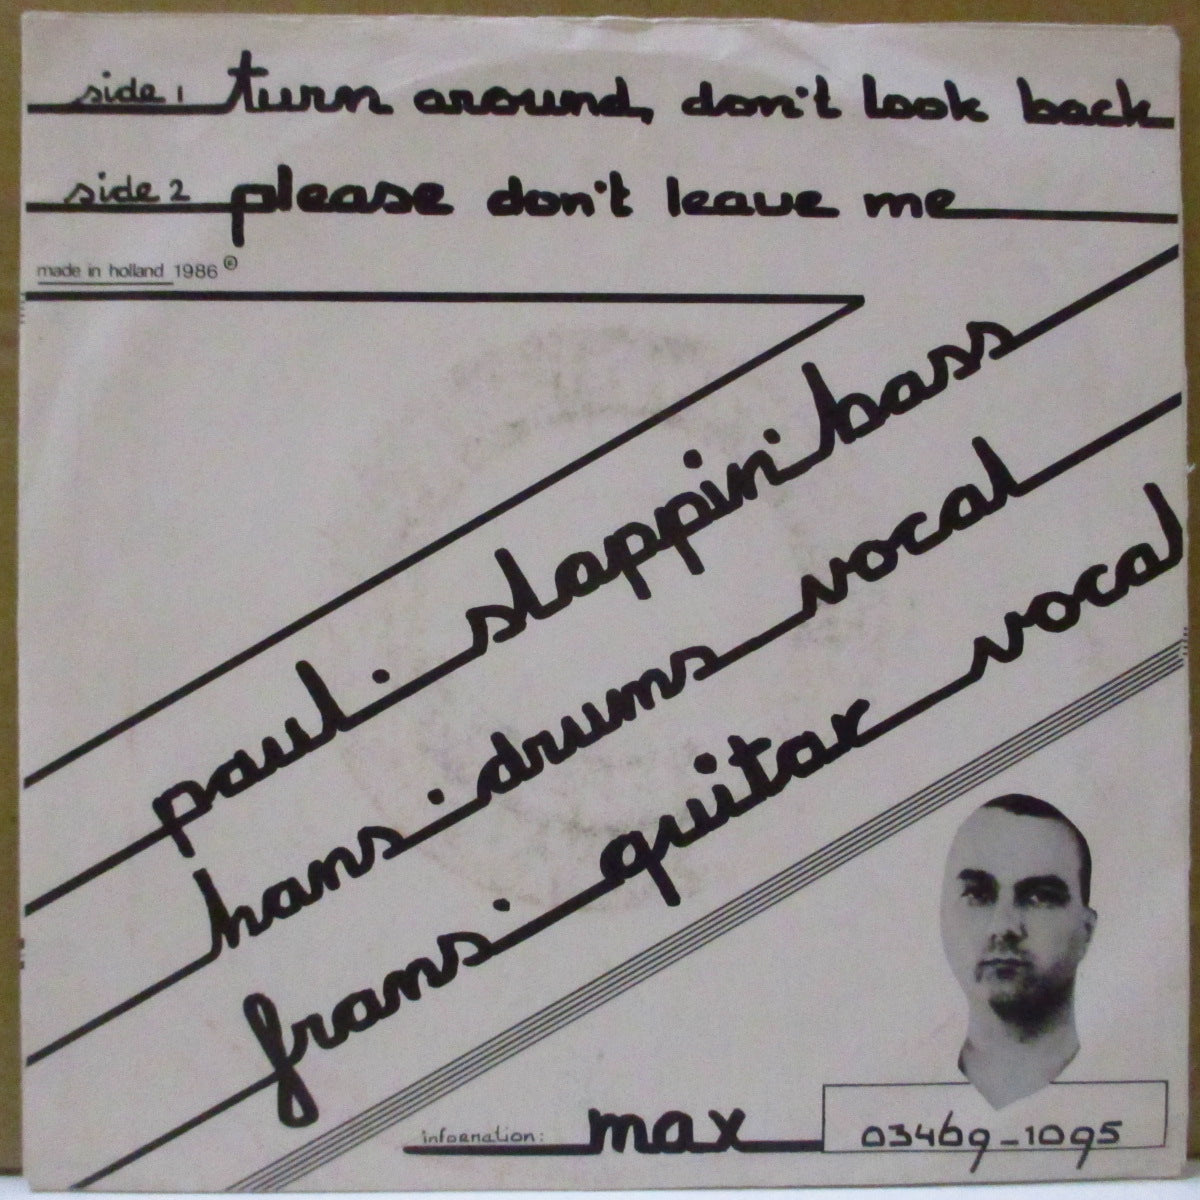 side 1 turn around, don't look back
side 2 please don't leave me
made in holland 1986 ©
paul. slappin' bass
hans. drums vocal
frans. guitar vocal
information: max 03469-1095